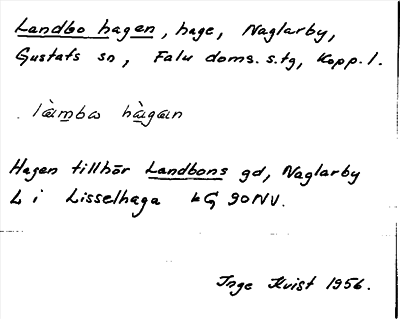 Landbo hagen, hage, Naglarby,
Gustafs sn, Falu doms.s.tg, Kopp. l.
làmbω hàgan
Hagen tillhör Landbons gd, Naglarby
L i Lisselhaga LG 90NV.
Inge Kvist 1956.